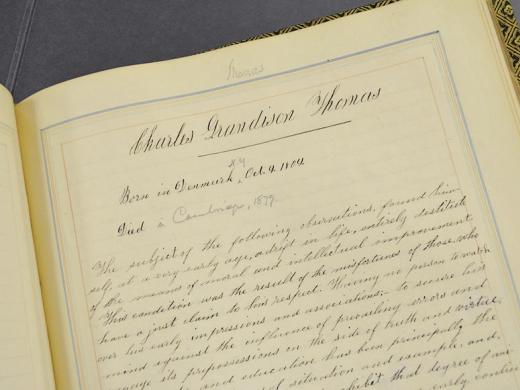 Thomas
Charles Grandison Thomas
N.Y.
Born in Denmark, Oct. 9. 1804
Died in Cambridge, 1879.
The subject of the following observations, found him-
self, at a very early age, adrift in life, entirely destitute
of the means of moral and intellectual improvement.
This condition was the result of the misfortunes of those, who
have a just claim to his respect. Having no person to watch
over his early impressions and associations; to secure his
mind against the influence of prevailing errors and
its prepossessions on the side of truth and virtue,
and education has been principally the
of situation and example: and,
exhibit that degree of
early